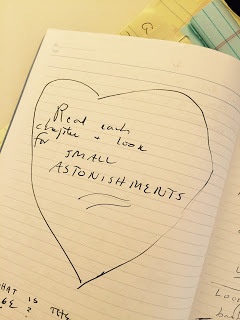 G
Read each
chapter + look
for SMALL
ASTONISHMENTS
WHAT IS THE